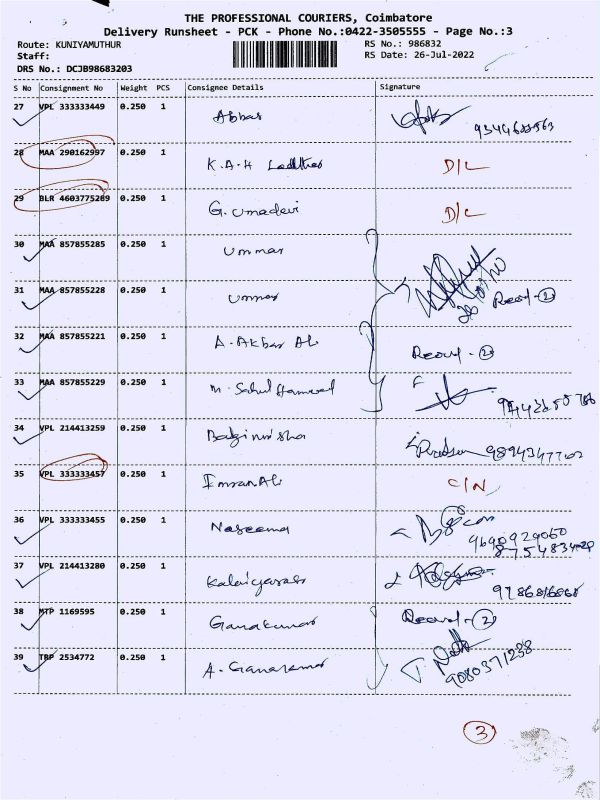 THE PROFESSIONAL COURIERS, Coimbatore
Delivery Runsheet - PCK - Phone No.:0422-3505555 - Page No.:3
Route: KUNIYAMUTHUR RS No.: 986832
Staff: RS Date: 26-Jul-2022
DRS No.: DCJB98683203
S No Consignment No Weight PCS Consignee Details Signature
27 VPL 333333449 0.250 1 Abbas
28 MAA 290162997 0.250 1 K.A.H D/L
29 BLR 4603775289 0.250 1 G. Umadevi D/L
30 MAA 857855285 0.250 1 Ummar
31 MAA 857855228 0.250 1 Ummar Recd - 2
32 MAA 857855221 0.250 1 A. Akbar Ali Recvd - 2
33 MAA 857855229 0.250 1 M. Sahul Hameed
34 VPL 214413259 0.250 1
35 VPL 333333457 0.250 1 Imran Ali C/N
36 VPL 333333455 0.250 1 Naseema
37 VPL 214413280 0.250 1 Kalaiyarasi
38 MTP 1169595 0.250 1 Ganakumar Recvd - 2
39 TRP 2534772 0.250 1 A. 9080371238
3